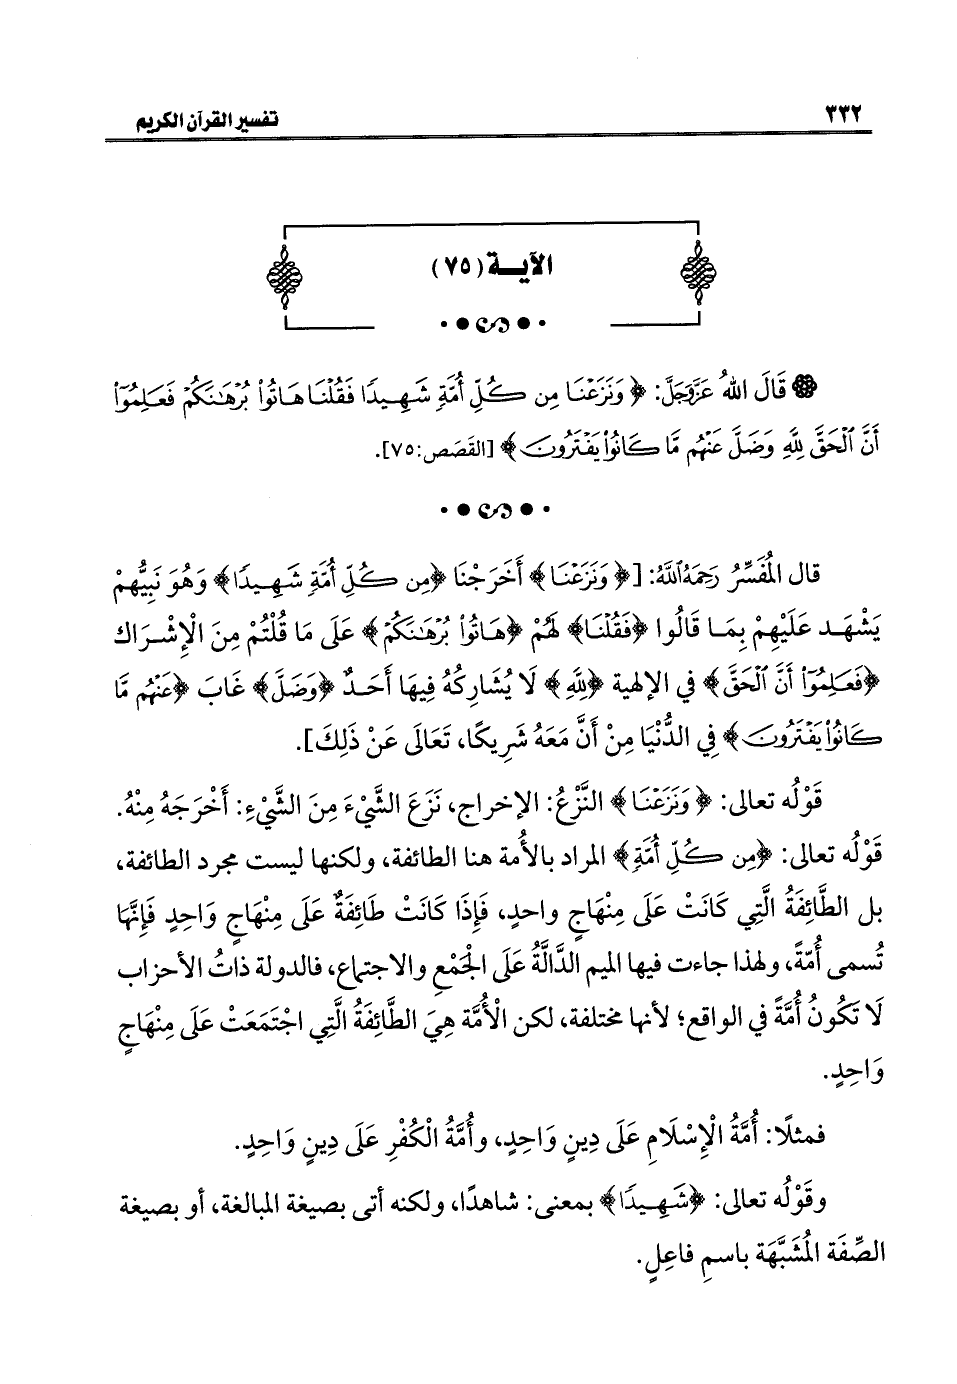 ٣٣٢
تفسير القرآن الكريم
الآيــة (٧٥)
قَالَ اللهُ عَزَّوَجَلَّ: ﴿ وَنَزَعْنَا مِن كُلِّ أُمَّةٍ شَهِيدًا فَقُلْنَا هَاتُوا۟ بُرْهَٰنَكُمْ فَعَلِمُوٓا۟
أَنَّ ٱلْحَقَّ لِلَّهِ وَضَلَّ عَنْهُم مَّا كَانُوا۟ يَفْتَرُونَ ﴾ [القَصَص:٧٥].
قال المُفَسِّرُ رَحِمَهُ ٱللَّهُ: [﴿ وَنَزَعْنَا ﴾ أَخَرَجْنَا ﴿مِن كُلِّ أُمَّةٍ شَهِيدًا﴾ وَهُوَ نَبِيُّهمْ
يَشْهَد عَلَيْهِمْ بِمَا قَالُوا ﴿فَقُلْنَا﴾ لَهُمْ ﴿هَاتُوا۟ بُرْهَٰنَكُمْ﴾ عَلَى مَا قُلْتُمْ مِنَ الْإِشْرَاك
﴿فَعَلِمُوٓا۟ أَنَّ ٱلْحَقَّ﴾ في الإلهية ﴿لِلَّهِ﴾ لَا يُشَارِكهُ فِيهَا أَحَدٌ ﴿وَضَلَّ﴾ غَابَ ﴿عَنْهُم مَّا
كَانُوا۟ يَفْتَرُونَ﴾ فِي الدُّنْيَا مِنْ أَنَّ مَعَهُ شَرِيكًا، تَعَالَى عَنْ ذَلِكَ].
قَوْلُه تعالى: ﴿ وَنَزَعْنَا ﴾ النَّزْعُ: الإخراج، نَزَعَ الشَّيْءَ مِنَ الشَّيْءِ: أَخْرَجَهُ مِنْهُ.
قَوْلُه تعالى: ﴿مِن كُلِّ أُمَّةٍ﴾ المراد بالأُمة هنا الطائفة، ولكنها ليست مجرد الطائفة،
بل الطَّائِفَةُ الَّتِي كَانَتْ عَلَى مِنْهَاجٍ واحدٍ، فَإِذَا كَانَتْ طَائِفَةٌ عَلَى مِنْهَاجٍ وَاحِدٍ فَإِنَّهَا
تُسمى أُمَّةً، ولهذا جاءت فيها الميم الدَّالَّةُ عَلَى الجَمْعِ والاجتماع، فالدولة ذاتُ الأحزاب
لَا تَكُونُ أُمَّةً في الواقع؛ لأنها مختلفة، لكن الْأُمَّة هِيَ الطَّائِفَةُ الَّتِي اجْتَمَعَتْ عَلَى مِنْهَاجٍ
وَاحِدٍ.
فمثلًا: أُمَّةُ الْإِسْلَامِ عَلَى دِينٍ وَاحِدٍ، وأُمَّةُ الْكُفْرِ عَلَى دِينٍ وَاحِدٍ.
وقَوْلُه تعالى: ﴿شَهِيدًا﴾ بمعنى: شاهدًا، ولكنه أتى بصيغة المبالغة، أو بصيغة
الصِّفَة المُشَبَّهَة باسمِ فاعِلٍ.